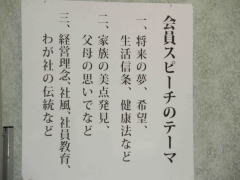 会員スピーチのテーマ
一、将来の夢、希望、
生活信条、健康法など
二、家族の美点発見、
父母の思いでなど
三、経営理念、社風、社員教育、
わが社の伝統など